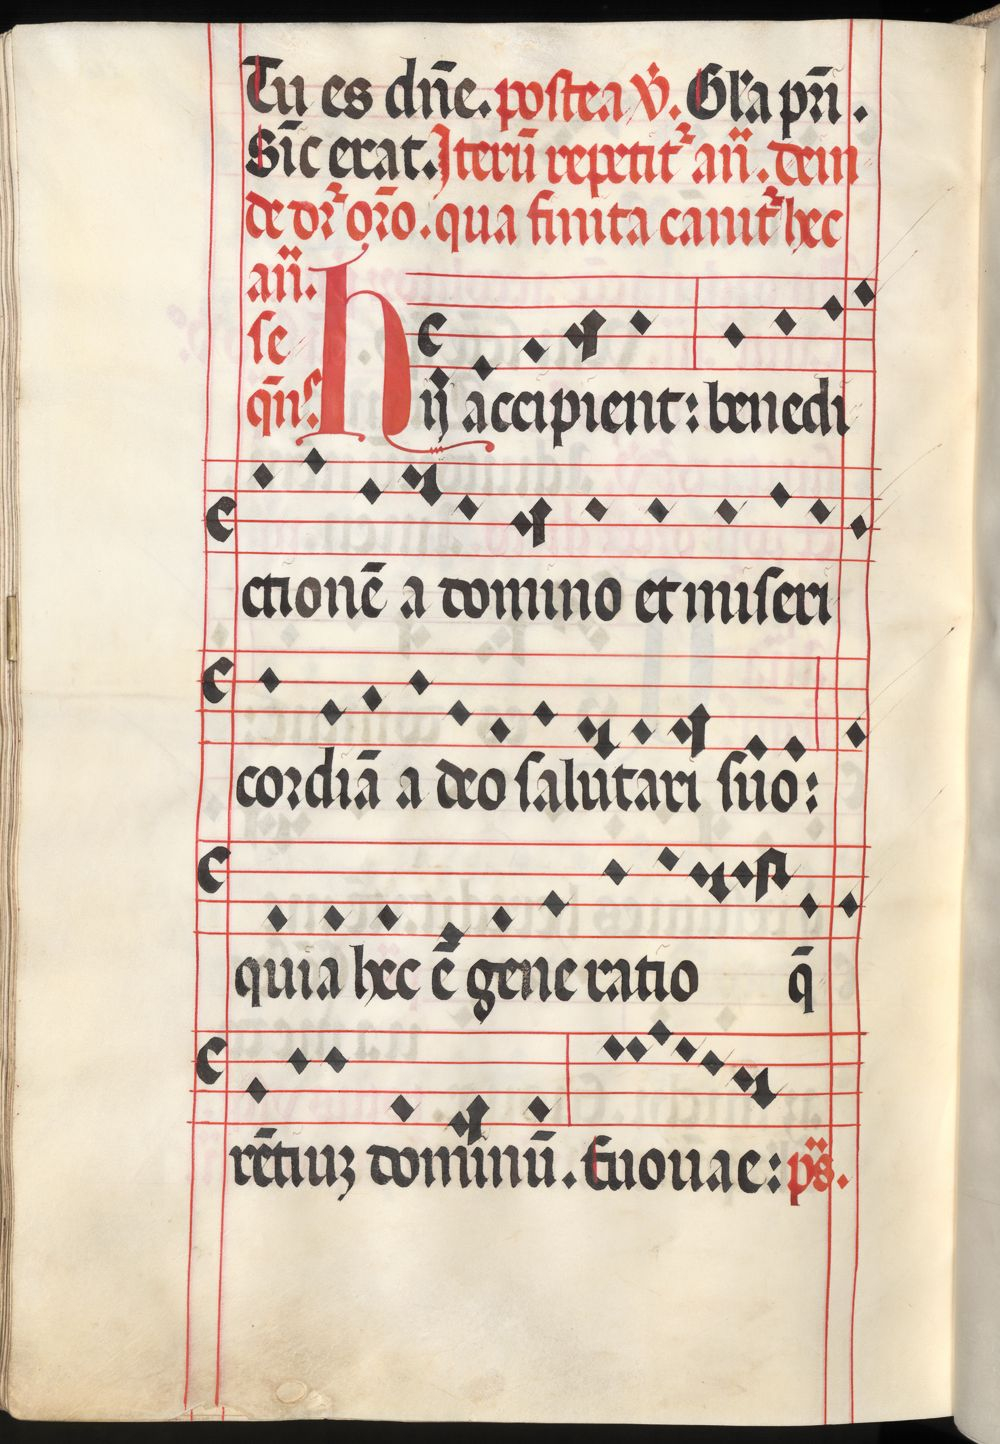 Tu es dn̄e. postea v̄. Gl'a pr̄i.
Sic̄ erat. Iterū repetit᷑ añ. dein
de dr᷑ orō. qua finita canit᷑ hec
añ.
se
qn̄s.
Hij accipient: benedi
ctionē a domino et miseri
cordiā a deo salutari suo:
quia hec ē generatio q̄
rētiuꝫ dominū. Euouae: ps̄.